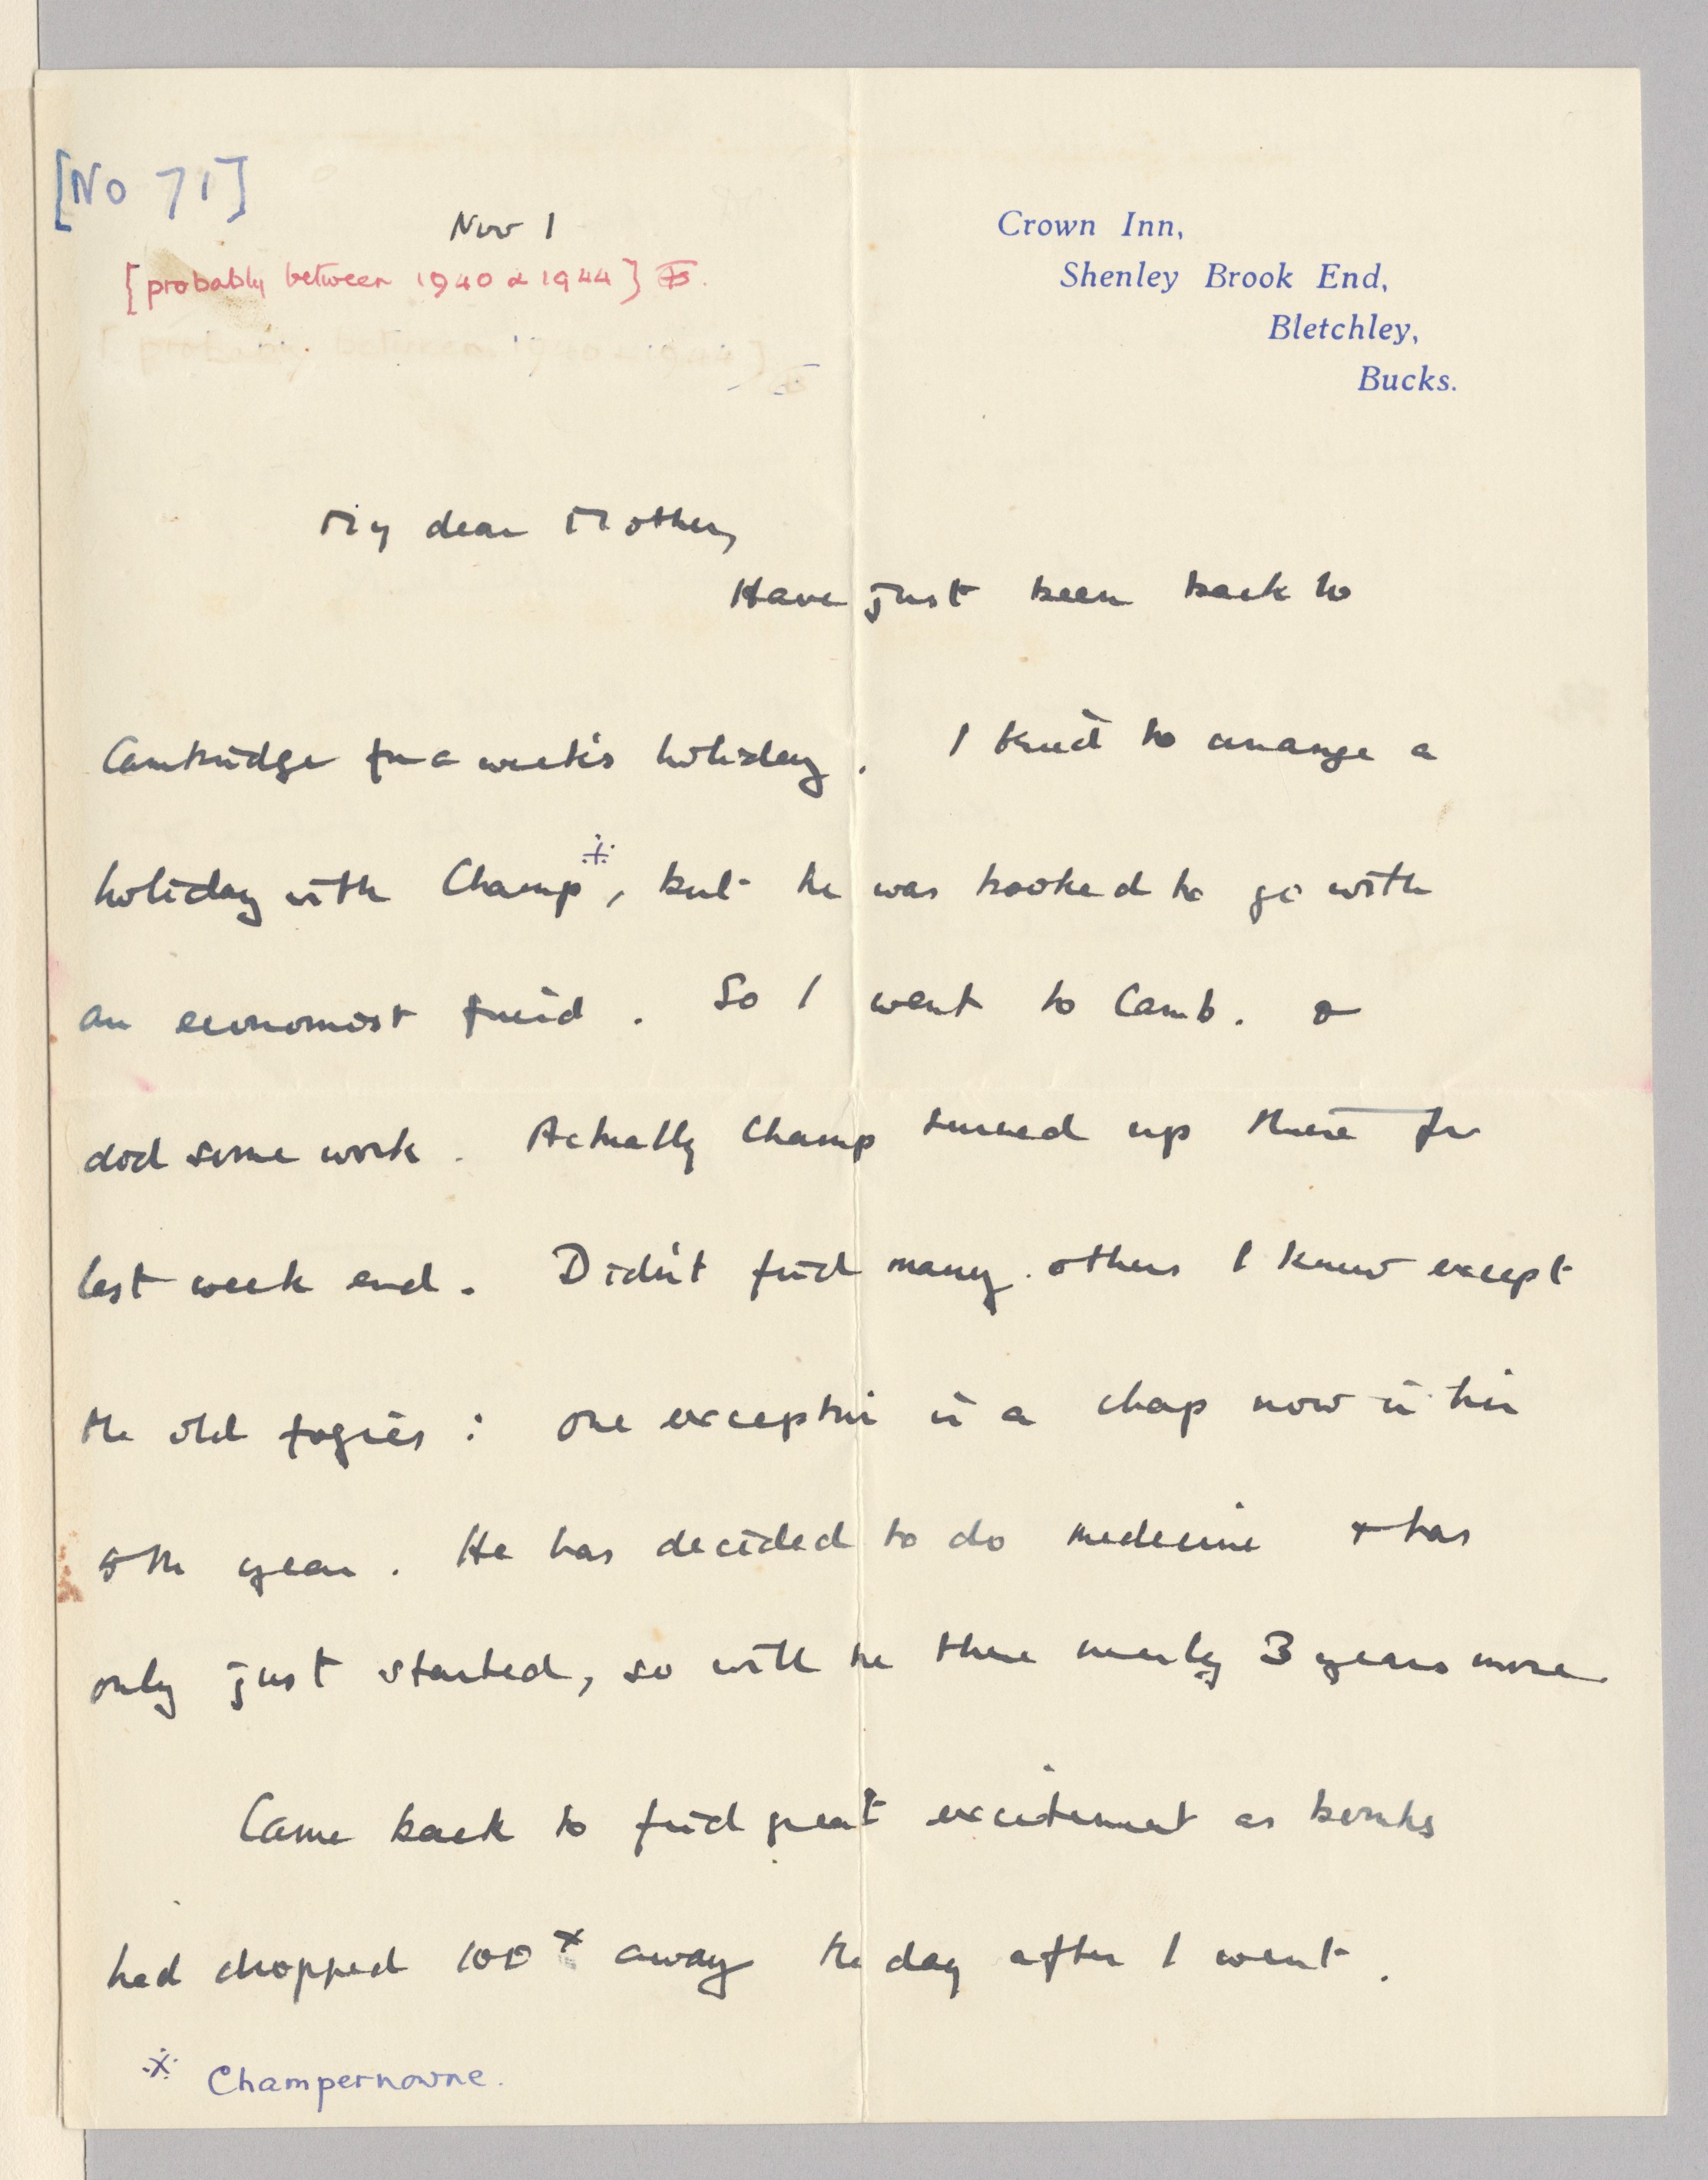 [No 71]
Nov 1
[probably between 1940 & 1944]
Crown Inn,
Shenley Brook End,
Bletchley,
Bucks.
My dear Mother,
Have just been back to
Cambridge for a week's holiday. I tried to arrange a
holiday with Champ※, but he was booked to go with
an economist friend. So I went to Camb. &
did some work. Actually Champ turned up there for
last week end. Didn't find many others I knew except
the old fogies: one exception is a chap now in his
5th year. He has decided to do medecine & has
only just started, so will be there nearly 3 years more
Came back to find great excitement as bombs
had dropped 100ˣ away the day after I went.
※ Champernowne.